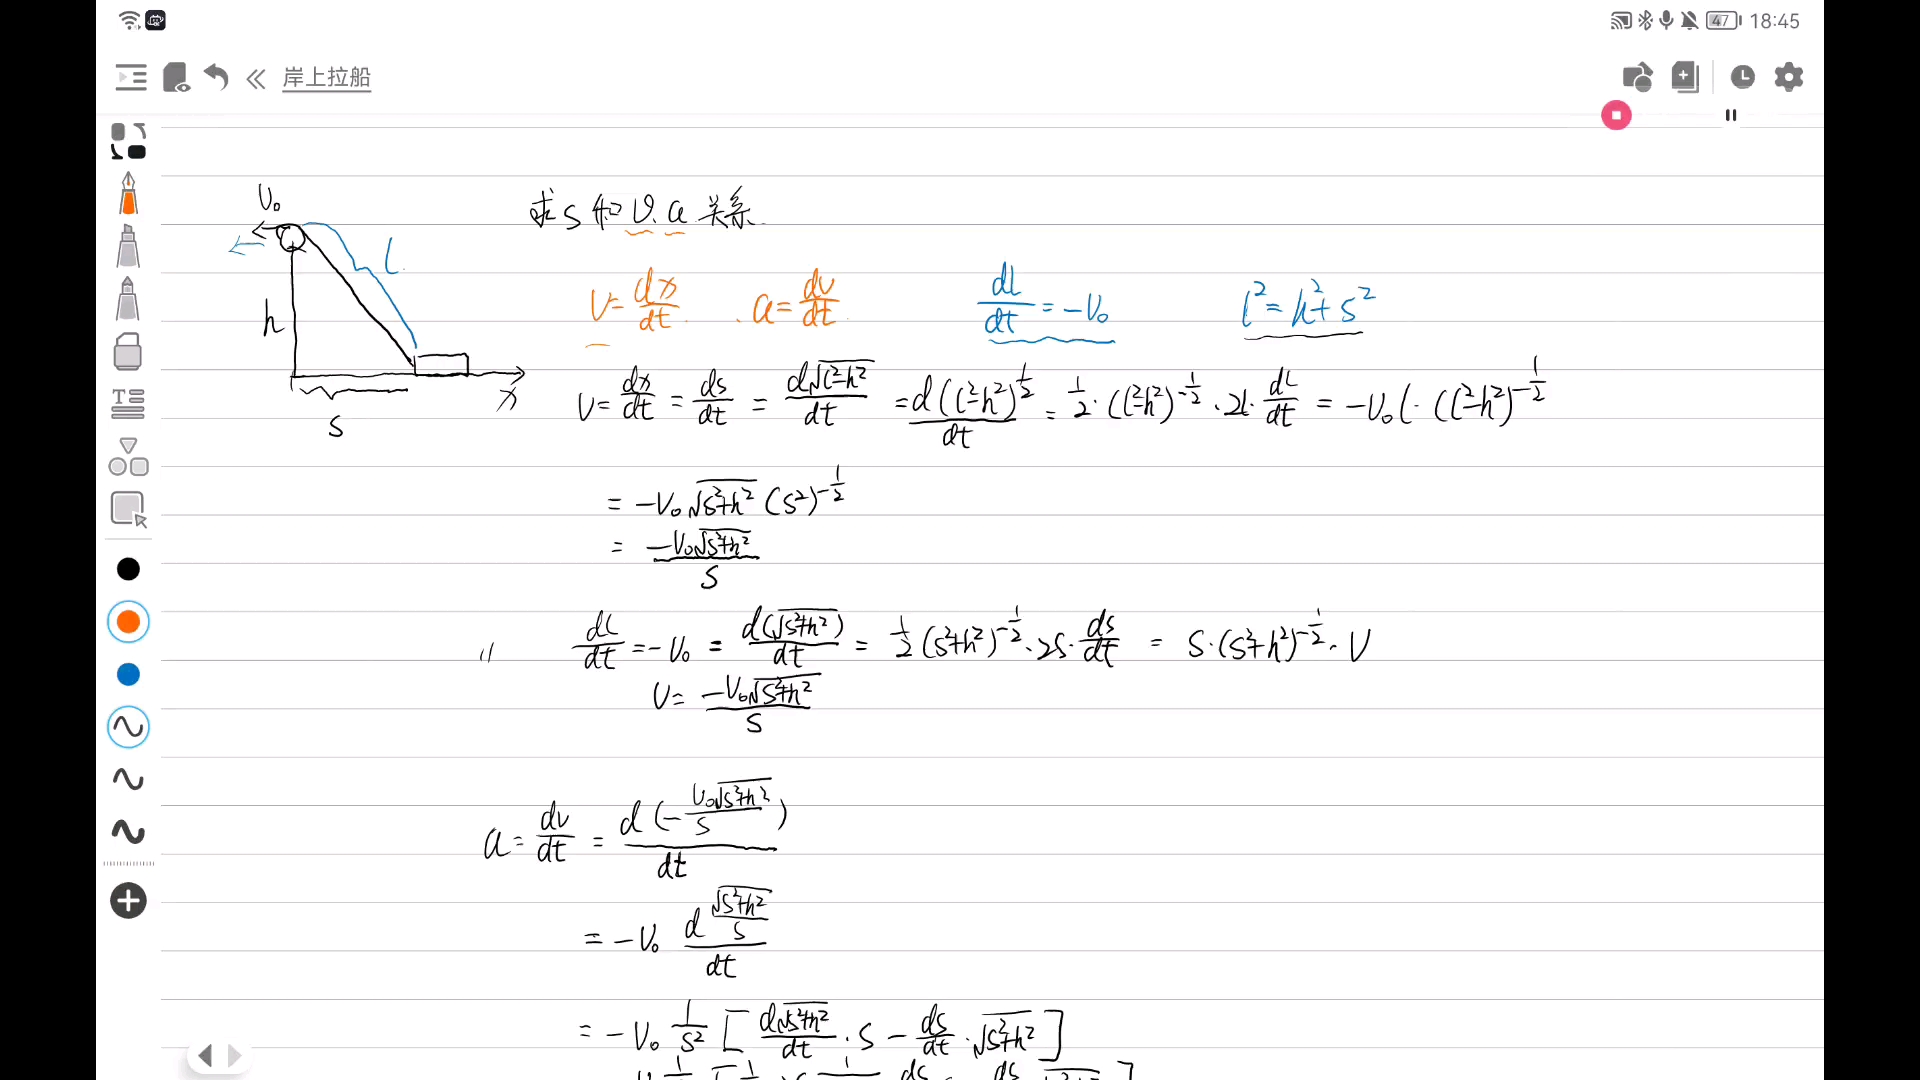 47 18:45
岸上拉船
V₀
求 s 和 v. a 关系.
l
h
s
x
v = dx/dt . a = dv/dt dl/dt = -v₀ l² = h² + s²
v = dx/dt = ds/dt = d√(l²-h²)/dt = d(l²-h²)^(1/2)/dt = 1/2 · (l²-h²)^(-1/2) · 2l · dl/dt = -v₀ l · (l²-h²)^(-1/2)
= -v₀ √(s²+h²) (s²)^(-1/2)
= -v₀√(s²+h²)/s
dl/dt = -v₀ = d(√(s²+h²))/dt = 1/2 (s²+h²)^(-1/2) · 2s · ds/dt = s · (s²+h²)^(-1/2) · v
v = -v₀√(s²+h²)/s
a = dv/dt = d(-v₀√(s²+h²)/s)/dt
= -v₀ d(√(s²+h²)/s)/dt
= -v₀ 1/s² [d√(s²+h²)/dt · s - ds/dt · √(s²+h²)]